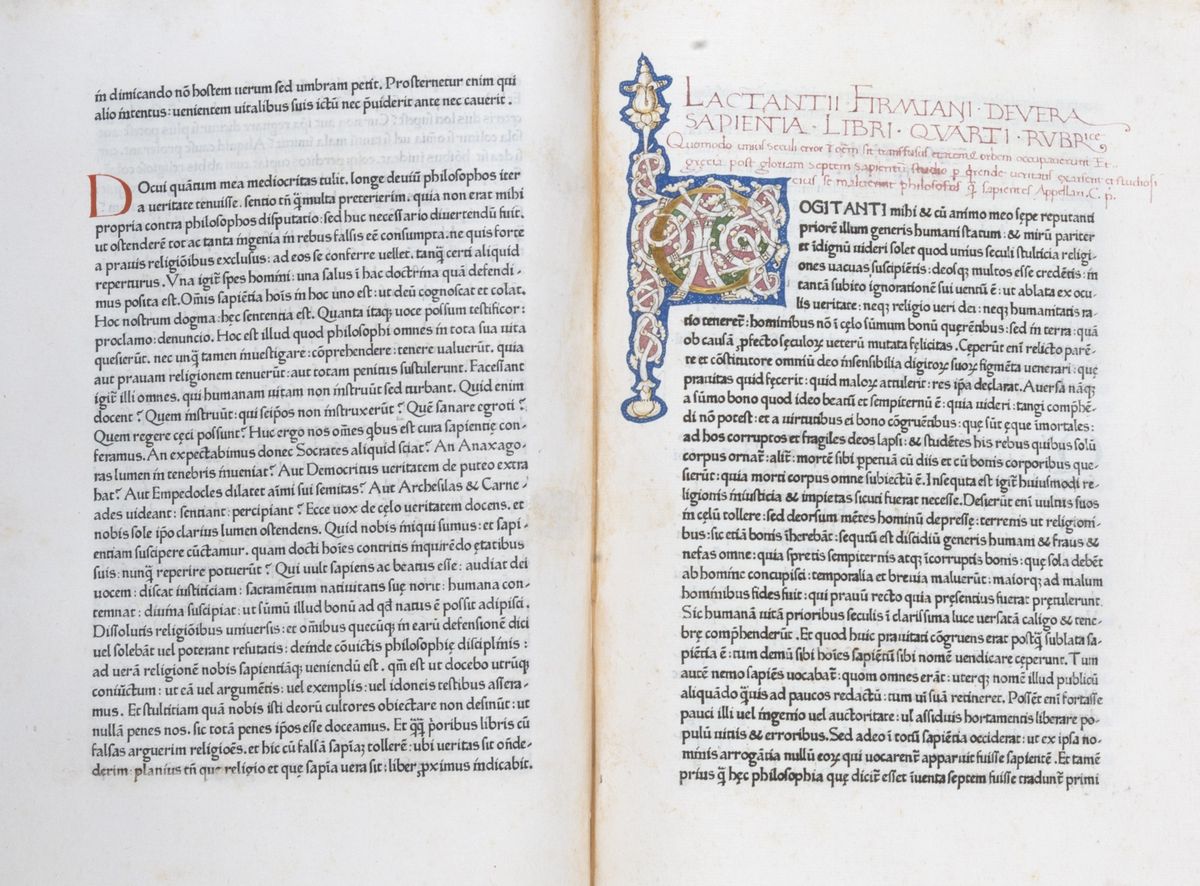 in dimicando nō hostem uerum sed umbram petit. Prosternetur enim qui
alio intentus: uenientem uitalibus suis ictū nec p̄uiderit ante nec cauerit.
Docui quātum mea mediocritas tulit. longe deuiū philosophos iter
a ueritate tenuisse. sentio tn̄ q̄ multa preterierim. quia non erat mihi
propria contra philosophos disputatio: sed huc necessario diuertendū fuit.
ut ostenderē tot ac tanta ingenia in rebus falsis eē consumpta. ne quis forte
a prauis religiōibus exclusus: ad eos se conferre uellet. tanq̄ certi aliquid
reperturus. Vna igit̄ spes homini: una salus ī hac doctrina quā defendi-
mus posita est. Om̄is sapiētia hois in hoc uno est: ut deū cognoscat et colat.
Hoc nostrum dogma: hęc sentencia est. Quanta itaq; uoce possum testificor:
proclamo: denuncio. Hoc est illud quod philosophi omnes in tota sua uita
quesierūt. nec unq̄ tamen inuestigare: cōprehendere: tenere ualuerūt. quia
aut prauam religionem tenuerūt: aut totam penitus sustulerunt. Facessant
igit̄ illi omnes. qui humanam uitam non instruūt sed turbant. Quid enim
docent? Quem instruūt: qui seipōs non instruxerūt? Quē sanare ęgroti?
Quem regere cęci possunt? Huc ergo nos om̄es qbus est cura sapientię con-
feramus. An expectabimus donec Socrates aliquid sciat? An Anaxago-
ras lumen in tenebris inueniat? Aut Democritus ueritatem de puteo extra
hat? Aut Empedocles dilatet aīmi sui semitas? Aut Archesilas & Carne-
ades uideant: sentiant: percipiant? Ecce uox de cęlo ueritatem docens. et
nobis sole ip̄o clarius lumen ostendens. Quid nobis iniqui sumus: et sapi-
entiam suscipere cūctamur. quam docti hoīes contritis inquirēdo ętatibus
suis: nunq̄ reperire potuerūt? Qui uult sapiens ac beatus esse: audiat dei
uocem: discat iusticiam: sacramētum natiuitatis suę norit: humana con-
temnat: diuina suscipiat: ut sūmū illud bonū ad qd̄ natus ē possit adipisci.
Dissolutis religiōibus uniuersis: et om̄ibus quecūq; in earū defensionē dici
uel solebāt uel poterant refutatis: deinde cōuictis philosophię disciplinis:
ad uerā religionē nobis sapientiāq; ueniendū est. qm̄ est ut docebo utrūq;
coniūctum: ut eā uel argumētis: uel exemplis: uel idoneis testibus assera-
mus. Et stultitiam quā nobis isti deorū cultores obiectare non desinūt: ut
nullā penes nos. sic totā penes ip̄os esse doceamus. Et q̄q̄ p̄oribus libris cū
falsas arguerim religiōes. et hic cū falsā sapīaꝫ tollerē: ubi ueritas sit oñde-
derim: planius tn̄ quę religio et quę sapīa uera sit: liber ꝓximus indicabit.
LACTANTII · FIRMIANI · DE VERA
SAPIENTIA · LIBRI · QVARTI · RVBRice
Quomodo unius seculi error orbem occupauerunt Et
post gloriam septem sapientū studio
cius se maluerint philosophos q̄ sapientes Appellari. C. p.
COGITANTI mihi & cū animo meo sępe reputanti
priorē illum generis humani statum: & mirū pariter
et īdignū uideri solet quod unius seculi stulticia religi-
ones uacuas suscipiētis: deosq; multos esse credētis: in
tantā subito ignorationē sui uentū ē: ut ablata ex ocu-
lis ueritate: neq; religio ueri dei: neq; humanitatis ra-
tio teneret̄: hominibus nō ī cęlo sūmum bonū quęrētibus: sed in terra: quā
ob causā ꝓfecto sęculoꝝ ueterū mutata fęlicitas. Cęperūt enī relicto parē-
te et cōstitutore omniū deo insensibilia digitoꝝ suoꝝ figmēta uenerari: quę
prauitas quid fęcerit: quid maloꝝ attulerit: res ip̄a declarat. Auersa nāq;
a sūmo bono quod ideo beatū et sempiternū ē: quia uideri: tangi comp̄hē-
di nō potest: et a uirtutibus ei bono cōgruētibus: quę sūt ęque īmortales:
ad hos corruptos et fragiles deos lapsi: & studētes his rebus quibus solū
corpus ornat̄: alit̄: mortē sibi ꝑpetuā cū diis et cū bonis corporibus que-
sierūt: quia morti corpus omne subiectū ē. Insequta est igit̄ huiusmodi re-
ligionis iniusticia & impietas sicuti fuerat necesse. Desierūt enī uultus suos
in cęlū tollere: sed deorsum mētes hominū depressę: terrenis ut religioni-
bus: sic etiā bonis īherebāt: sequtū est discidiū generis humani & fraus &
nefas omne: quia spretis sempiternis atq; īcorruptis bonis: quę sola debēt
ab homine concupisci: temporalia et breuia maluerūt: maiorq; ad malum
hominibus fides fuit: qui prauū recto quia pręsentius fuerat pretulerunt
Sic humanā uitā prioribus seculis ī clarissima luce uersatā caligo & tene-
brę comp̄henderūt. Et quod huic prauitati cōgruens erat postq̄ sublata sa-
piētia ē: tum demū sibi hoīes sapiētū sibi nomē uendicare cęperunt. Tum
autē nemo sapiēs uocabat̄: quom omnes erāt: uterq; nomē illud publicū
aliquādo q̄uis ad paucos redactū: tum uī suā retineret. Possēt enī fortasse
pauci illi uel ingenio uel auctoritate: ul̄ assiduis hortamentis liberare po-
pulū uitiis & erroribus. Sed adeo ī totū sapiētia occiderat: ut ex ipsa no-
minis arrogātia nullū eoꝝ qui uocarent̄ apparuit fuisse sapientē. Et tamē
prius q̄ hęc philosophia quę dicit̄ esset īuenta septem fuisse tradunt̄ primi